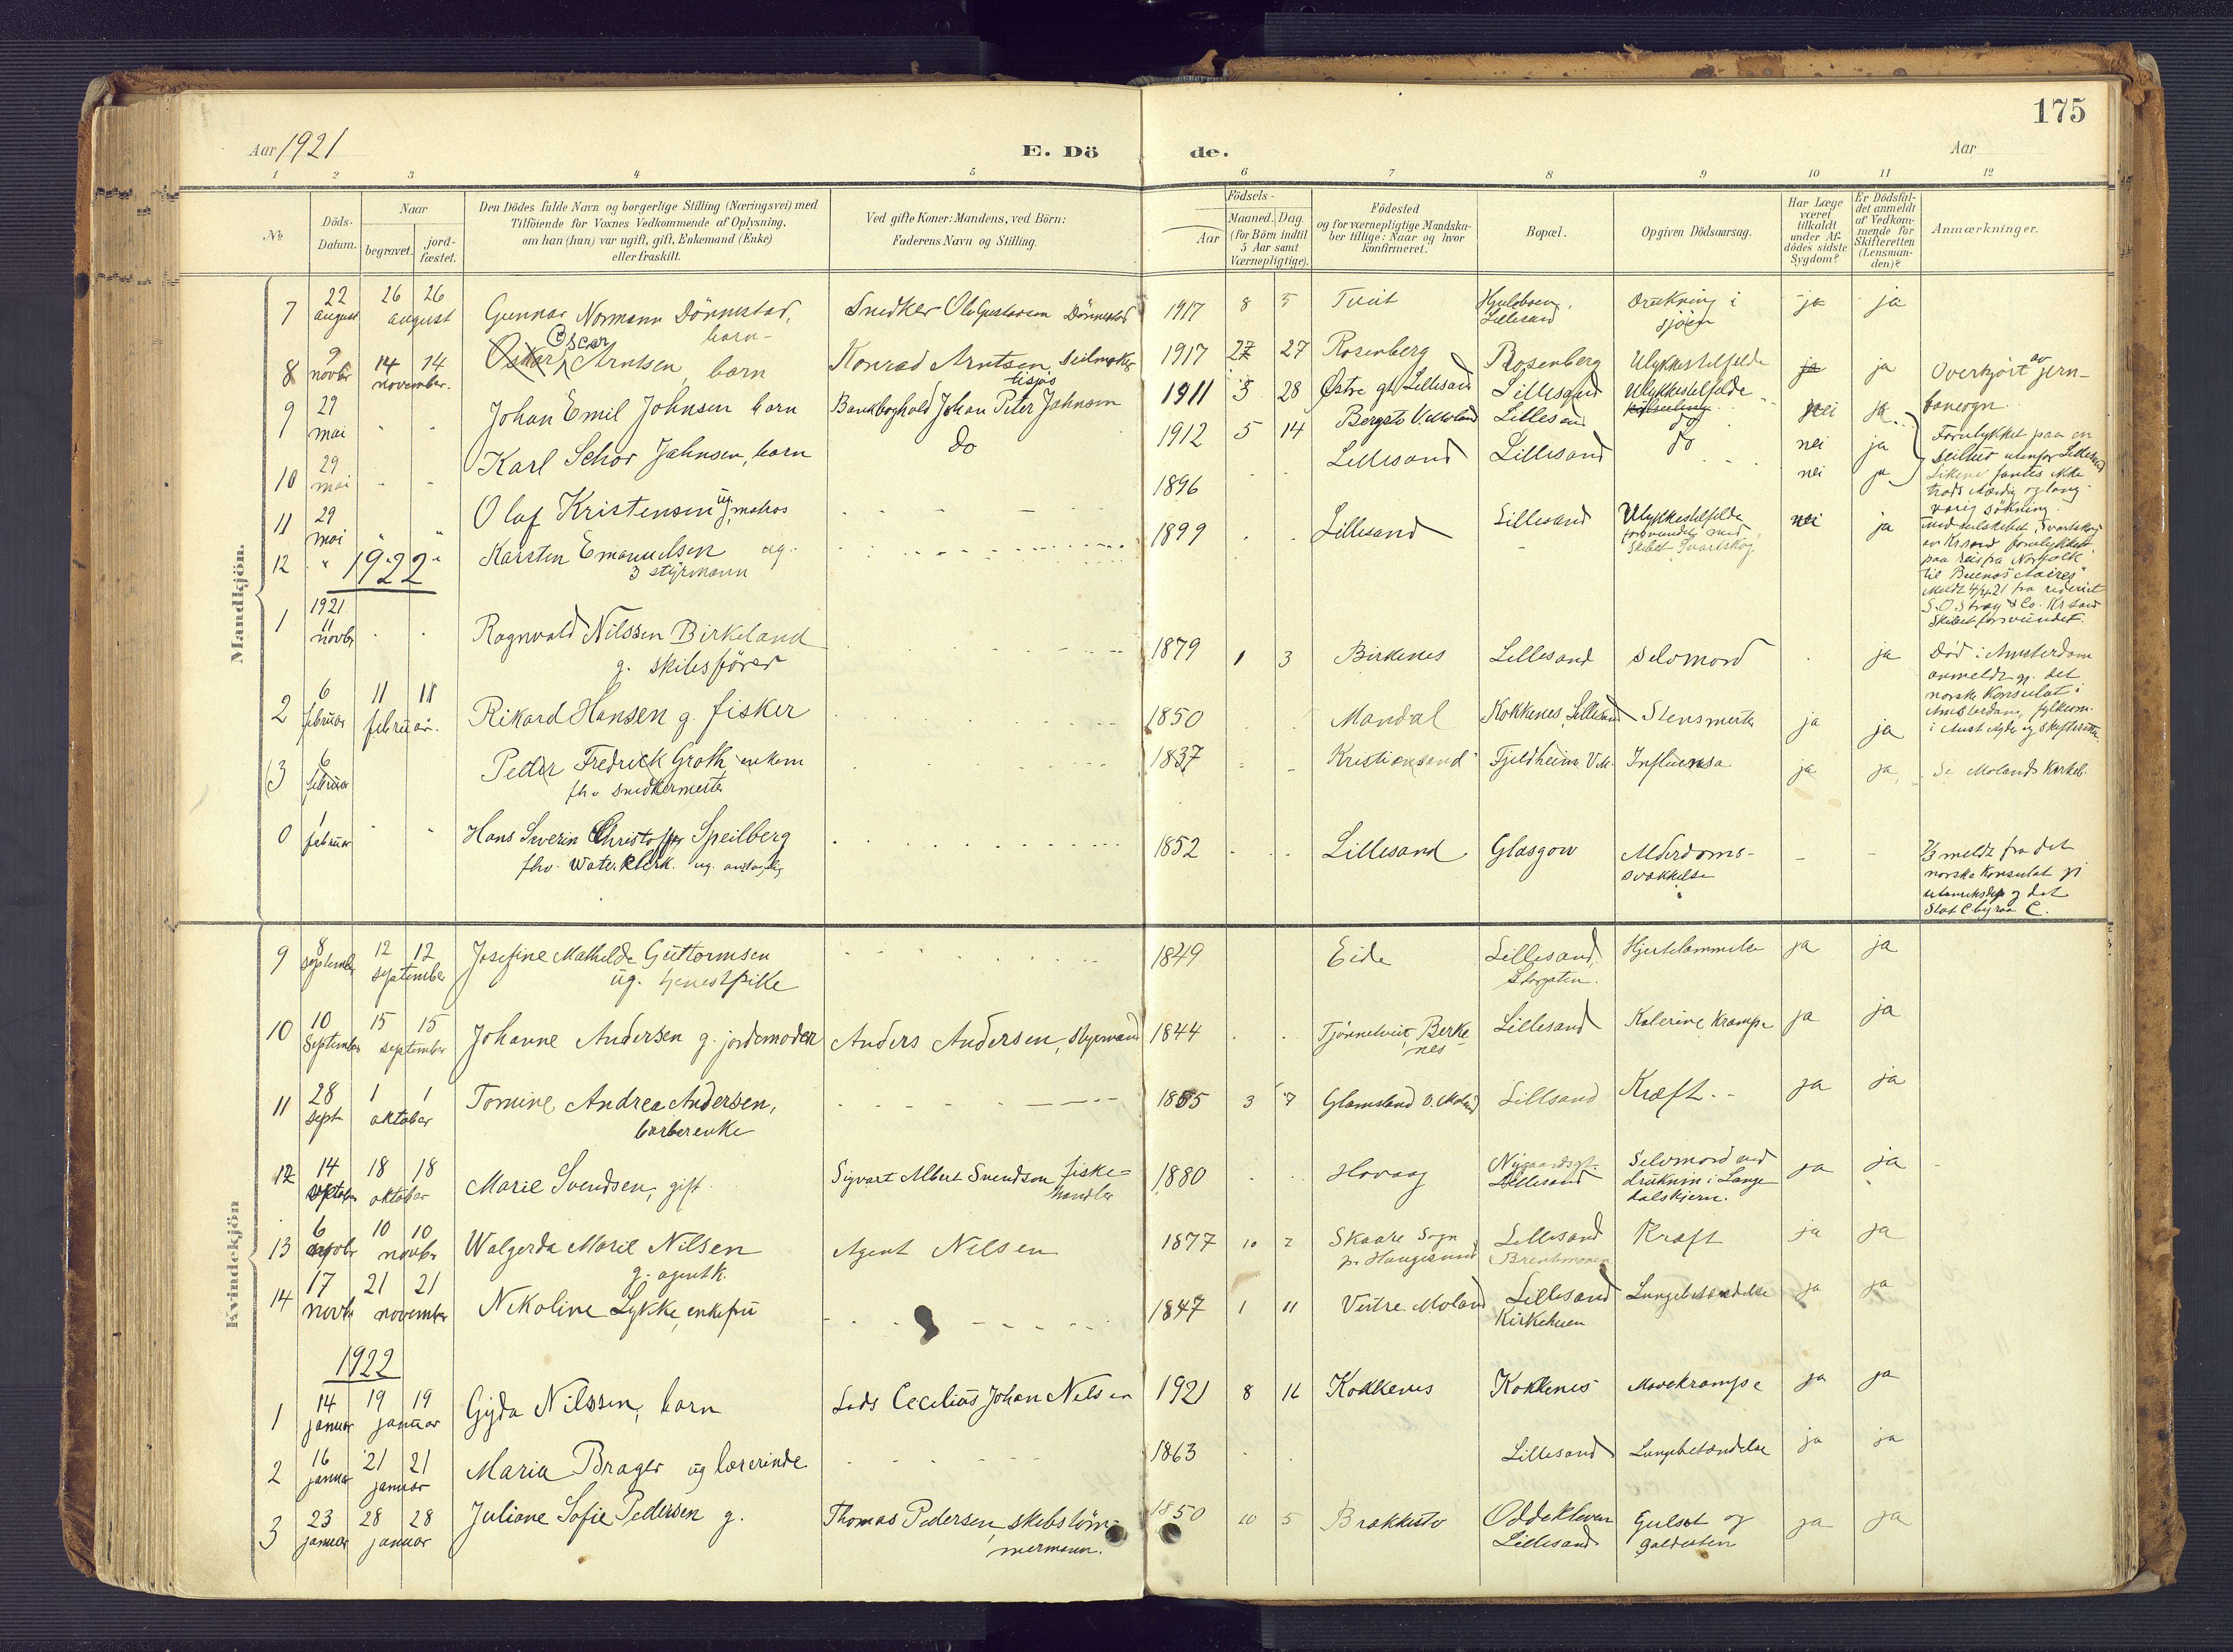 175
Aar 1921
E. Dö
de.
Aar
1 2 3 4 5 6 7 8 9 10 11 12
No
Döds-Datum.
Naar
begravet.
jord-fæstet.
Den Dödes fulde Navn og borgerlige Stilling (Næringsvei) med
Tilföiende for Voxnes Vedkommende af Oplysning,
om han (hun) var ugift, gift, Enkemand (Enke)
eller fraskilt.
Ved gifte Koner: Mandens, ved Börn:
Faderens Navn og Stilling.
Födsels-
Aar
Maaned. Dag.
(for Börn indtil
5 Aar samt
Værnepligtige).
Födested
og for værnepligtige Mandska-
ber tillige: Naar og hvor
konfirmeret.
Bopæl.
Opgiven Dödsaarsag.
Har Læge
været
tilkaldt
under Af-
dödes sidste
Sygdom?
Er Dödsfal-
det anmeldt
af Vedkom-
mende for
Skifteretten
(Lensman-
den)?
Anmærkninger.
Mandkjön.
7 22 august 26 26 august Gunnar Normann Dönnestad, barn- Snedker Ole Gustavsen Dönnestad 1917 8 5 Tveit Lillesand Drukning i sjöen ja ja
8 9 novbr 14 14 november. Oskar Oscar Arntsen, barn Konrad Arntsen, seilmaker 1917 27 Rosenberg Rosenberg Ulykkestilfelde ja ja Overkjört av jern-
banevogn.
9 29 mai " " Johan Emil Johnsen barn Bankboghold Johan Peter Jahnsen 1911 5 28 Østre gt. Lillesand Lillesand Ulykkestilfelde nei ja
10 29 mai " " Karl Schor Jahnsen, barn do 1912 5 14 Bergsto V. Moland Lillesand do nei ja Forulykket paa en
seiltur utenfor Lillesand
11 29 mai Olaf Kristensen ug. matros 1896 Lillesand Lillesand do nei ja Likene fantes ikke
12 Karsten Emanuelsen ug. 3 styrmann 1899 Lillesand Lillesand Ulykkestilfelde forsvundet med Skibet Svartskog nei ja
paa reis fra Norfolk
til Buenos Aires
S.O. Stray & Co. Krsand
Skibet forsvundet.
1922
1 1921 11 novbr Ragnvald Nilssen Birkeland g. skibsförer 1879 1 3 Birkenes Lillesand Selvmord ja Död i Amsterdam
anmeldt gj. det
norske Konsulat i
Amsterdam, fylkesm.
i Aust Agder og Skifteretten.
2 6 februar 11 11 februar. Rikard Hansen g. fisker 1850 Mandal Kokkenes, Lillesand ja ja
(3 6 februar Petter Fredrick Groth enkem fhv snedkermester 1837 Kristiansand Fjeldheim V.M. Influensa ja ja Se Molands Kirkeb.
0 1 februar Hans Severin Christoffer Speilberg fhv. Waterklerk. ug. 1852 Lillesand Glasgow Alderdoms-
svækkelse meldt fra det
norske Konsulat gj
utenriksdep og det
Stat. C. byraa C.
Kvindekjön
9 8 september 12 12 september Josefine Mathilde Guttormsen ug. tjenestpike 1849 Eide Lillesand, Storgaten. Hjertelammelse ja ja
10 10 September 15 15 september Johanne Andersen g. jordemoder Anders Andersen, styrmand 1844 Tjönnetveit, Berkenes Lillesand ja ja
11 28 sept 1 1 oktober Tomine Andrea Andersen, barberenke 1885 3 7 Glamsland V. Moland Lillesand Kræft. ja ja
12 14 oktober 18 18 oktober Marie Svendsen, gift. Sigvart Albert Svendsen fiske-
handler 1880 Hovaag Nygaardsgt. Lillesand Selvmord ved
drukning i Lange-
dalskjern. ja ja
13 6 novbr 10 10 novbr Walgerda Marie Nilsen g. agent k. Agent Nilsen 1877 10 2 Skaare Sogn pr. Haugesund Lillesand Brentemoen Kræft ja ja
14 17 novbr 21 21 november Nikoline Lykke, enkefru 1847 1 11 Vestre Moland Lillesand Kirkeheien Lungebetændelse ja ja
1922
1 14 januar 19 19 januar Gyda Nilssen, barn Lods Cecilius Johan Nelsen 1921 8 16 Kokkenes Kokkenes Mavekrampe ja ja
2 16 januar 21 21 januar Maria Brager ug lærerinde 1863 Lillesand Lungebetændelse ja ja
3 23 januar 28 28 januar Juliane Sofie Pedersen g. Thomas Pedersen, skibstöm-
mermann. 1850 10 5 Brækkestö Oddekleven Lillesand Gulsot og
galdesten ja ja